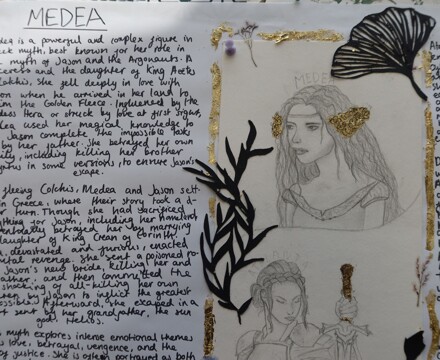 MEDEA
is a powerful and complex figure in
myth, best known for her role in
myth of Jason and the Argonauts. A
and the daughter of King Aeetes
Colchis, she fell deeply in love with
when he arrived in her land to
the Golden Fleece. Influenced by the
Hera or struck by love at first sight,
used her magical knowledge to
Jason complete the impossible tasks
by her father. She betrayed her own
including killing her brother
in some versions, to ensure Jason's
escape.
fleeing Colchis, Medea and Jason
in Greece, where their story took a
turn. Though she had sacrificed
for Jason, including her homeland
betrayed her by marrying
daughter of King Creon of Corinth.
devastated and furious, enacted
revenge. She sent a poisoned
Jason's new bride, killing her and
father, and then committed the
shocking of all-killing her own
by Jason to inflict the greatest
Afterward, she escaped in a
sent by her grandfather, the sun
god Helios.
myth explores intense emotional themes
love, betrayal, vengeance, and the
of justice. She is often portrayed as both
MEDEA